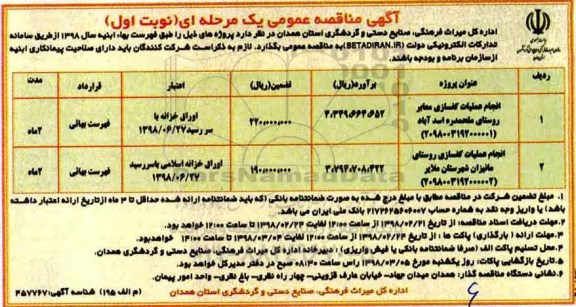 آگهی مناقصه عمومی یک مرحله ای(نوبت اول)
اداره کل میراث فرهنگی، صنایع دستی و گردشگری استان همدان در نظر دارد پروژه های ذیل را طبق فهرست بهاء ابنیه سال ۱۳۹۸ ازطریق سامانه
تدارکات الکترونیکی دولت (BETADIRAN.IR)به مناقصه عمومی بگذارد. لازم به ذکراست شرکت کنندگان باید دارای صلاحیت پیمانکاری ابنیه
ازسازمان برنامه و بودجه باشند.
ردیف
عنوان پروژه
برآورد(ریال)
تضمین(ریال)
اعتبار
قرارداد
مدت
۱
انجام عملیات کفسازی معابر
روستای ملحمدره اسد آباد
(۲۰۹۸۰۰۳۱۹۲۰۰۰۰۰۱)
۴،۳۴۹،۶۶۴،۶۵۲
۲۲۰،۰۰۰،۰۰۰
اوراق خزانه با
سررسید ۱۳۹۸/۰۶/۲۷
فهرست بهائی
۲ماه
۲
انجام عملیات کفسازی روستای
مانیزان شهرستان ملایر
(۲۰۹۸۰۰۳۱۹۲۰۰۰۰۰۲)
۳،۷۹۴،۷۰۸،۴۲۲
۱۹۰،۰۰۰،۰۰۰
اوراق خزانه اسلامی باسررسید
۱۳۹۸/۰۶/۲۷
فهرست بهائی
۲ماه
۱. مبلغ تضمین شرکت در مناقصه مطابق با مبلغ درج شده به صورت ضمانتنامه بانکی (که باید ضمانتنامه ارائه شده حداقل تا ۳ ماه ازتاریخ ارائه اعتبار داشته
باشد) یا واریز وجه نقد به شماره حساب ۲۱۷۲۶۴۵۶۰۶۰۰۷ بانک ملی ایران می باشد.
۲.مهلت دریافت اسناد مناقصه: از تاریخ ۱۳۹۸/۰۲/۲۱ از ساعت ۱۲:۰۰ لغایت ۱۳۹۸/۰۲/۲۴ تا ساعت ۱۴:۰۰ خواهد بود.
۳.مهلت ارائه ( بارگذاری) پاکت ها : از تاریخ ۱۳۹۸/۰۲/۲۴ از ساعت ۱۴:۰۰ لغایت ۱۳۹۸/۰۳/۰۴ تا ساعت ۱۴:۰۰ خواهدبود.
۴.محل تسلیم پاکت الف (صرفا ضمانتنامه بانکی یا فیش واریزی): دبیرخانه اداره کل میراث فرهنگی، صنایع دستی و گردشگری همدان.
۵.تاریخ بازگشایی پاکات: روز یکشنبه مورخ ۱۳۹۸/۰۳/۰۵ راس ساعت ۰۸:۴۰ صبح در دفتر مدیرکل خواهد بود.
۶.نشانی دستگاه مناقصه گذار: همدان میدان جهاد- خیابان عارف قزوینی- چهار راه نظری- باغ نظری- واحد امور پیمان.
اداره کل میراث فرهنگی، صنایع دستی و گردشگری استان همدان
(م الف ۱۹۵) شناسه آگهی:۴۵۷۷۶۷